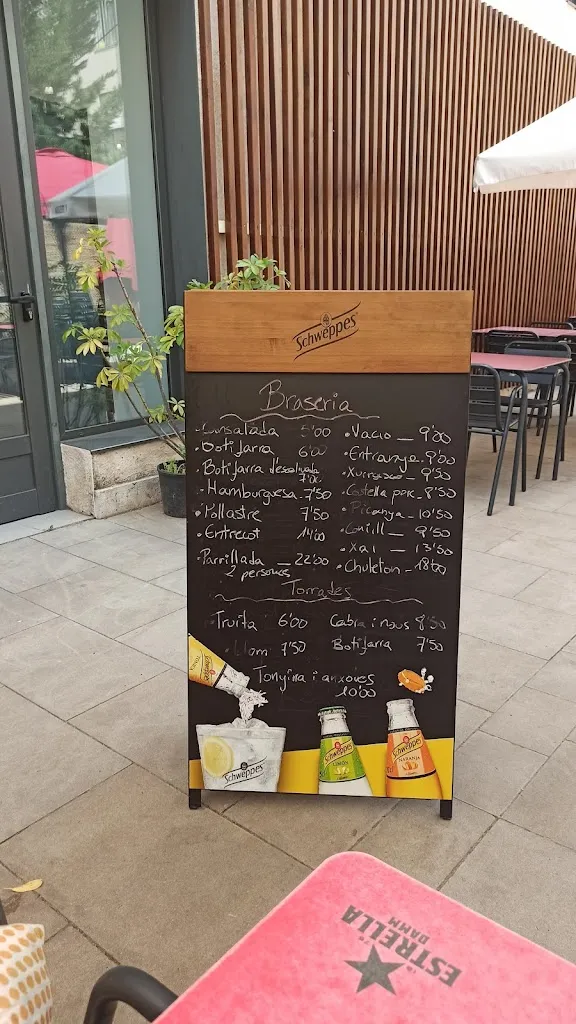 Schweppes
Braseria
· Ensalada 5'00
· Botifarra 6'00
· Botifarra descalivada 7'00
· Hamburguesa 7'50
· Pollastre 7'50
· Entrecot 14'00
Parrillada — 22'00
2 persones
· Vacio — 9'00
· Entranya 9'00
· Xurrasco — 9'50
· Costella porc - 8'50
· Picanya — 10'50
· Conill — 9'50
· Xai — 13'50
· Chuleton — 18'00
Torrades
· Truita 6'00 Cabra i nous 8'50
· Llom 7'50 Botifarra 7'50
Tonyina i anxoves
10'00
Schweppes
Schweppes
Schweppes
LIMÓN
Schweppes
NARANJA
ESTRELLA
DAMM